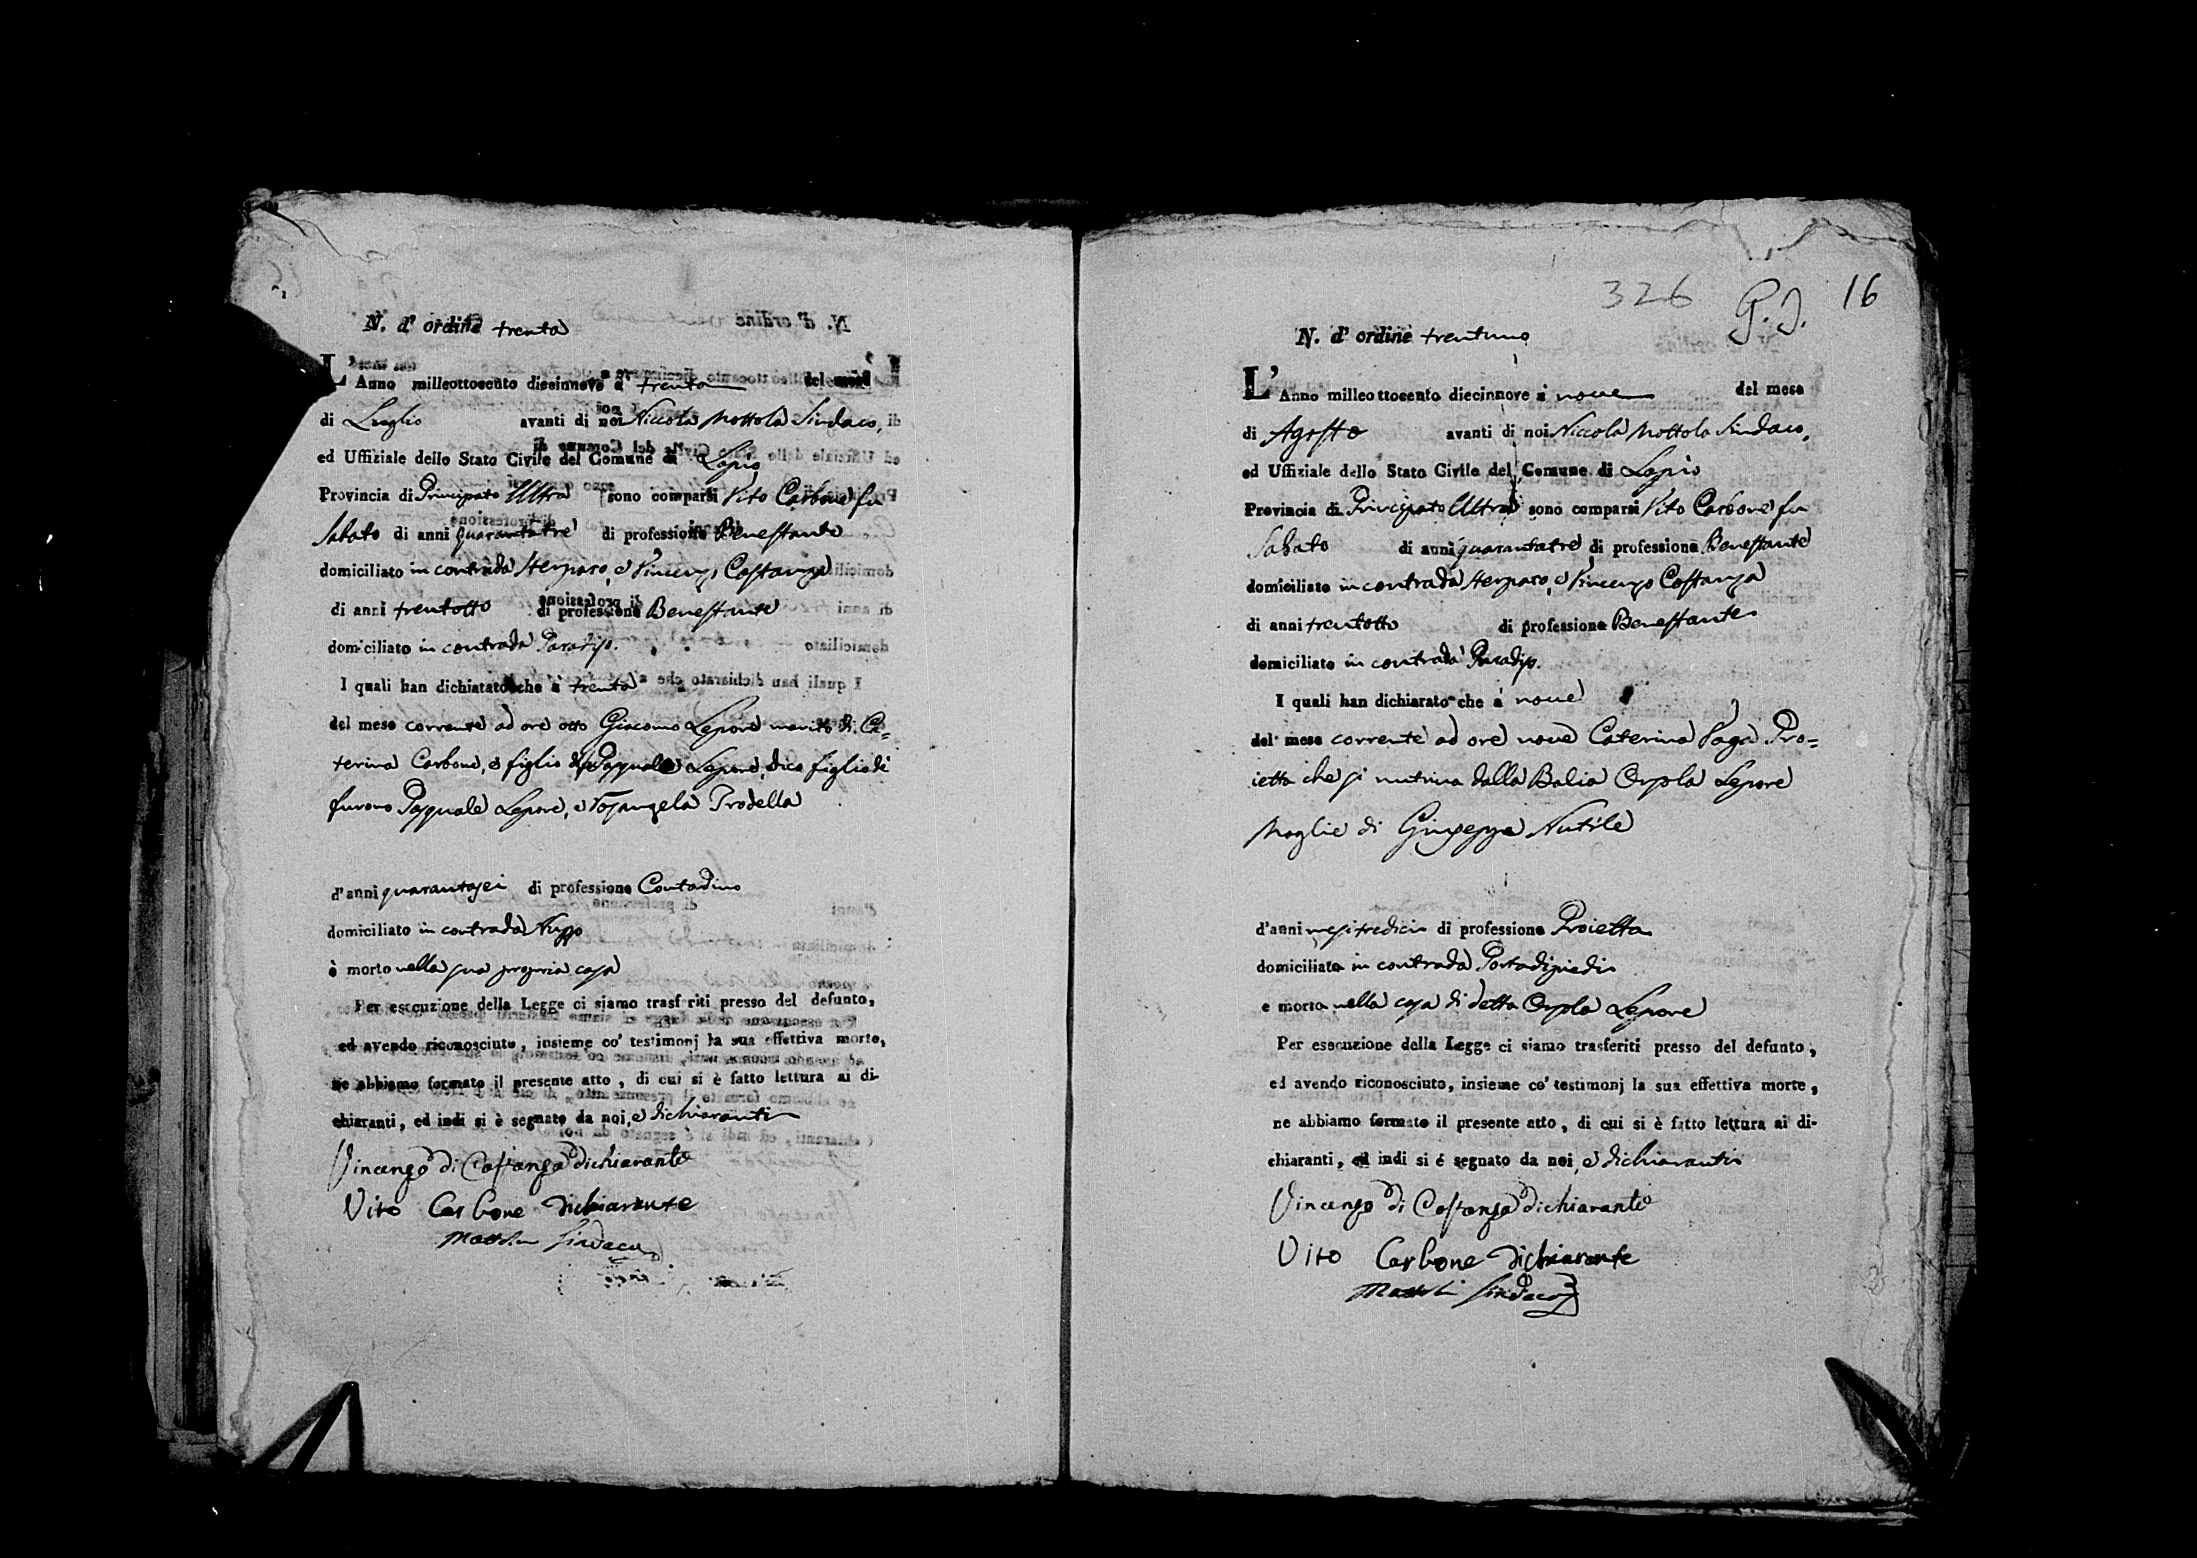 N. d' ordine trenta
L'Anno milleottocento diecinnove a' trenta del mese
di Luglio avanti di noi Niccola Mottola Sindaco,
ed Uffiziale dello Stato Civile del Comune di Lapio
Provincia di Principato Ultra sono comparsi Vito Carbone fu
Sabato di anni quarantatre di professione Benestante
domiciliato in contrada e Vincenzo Costanza
di anni trentotto di professione Benestante
domiciliato in contrada Paradiso.
I quali han dichiarato che a' trenta
del mese corrente ad ore otto Giacomo Lepore marito di Ca=
terina Carbone, e figlio di Pasquale Lepore, dico figlio di
furono Pasquale Lepore, e Rosangela Trodella
d'anni quarantasei di professione Contadino
domiciliato in contrada
è morto nella sua propria casa
Per esecuzione della Legge ci siamo trasf riti presso del defunto,
ed avendo riconosciuto, insieme co' testimonj la sua effettiva morte,
ne abbiamo formato il presente atto, di cui si è fatto lettura ai di-
chiaranti, ed indi si è segnato da noi, e dichiaranti
Vincenzo di Costanzo dichiarante
Vito Carbone dichiarante
Mottola Sindaco
326 P. J. 16
N. d' ordine trentuno
L'Anno milleottocento diecinnove a nove del mese
di Agosto avanti di noi Niccola Mottola Sindaco,
ed Uffiziale dello Stato Civile del Comune di Lapio
Provincia di Principato Ultra sono comparsi Vito Carbone fu
Sabato di anni quarantatre di professione Benestante
domiciliato in contrada e Vincenzo Costanza
di anni trentotto di professione Benestante
domiciliato in contrada Paradiso.
I quali han dichiarato che a' nove
del mese corrente ad ore nove Caterina Vaga Pro=
ietta che si nutriva dalla Balia Orsola Lepore
Moglie di Giuseppe Nutile
d'anni mesi tredici di professione Proietta
domiciliata in contrada Portadipiedi
e morta nella casa di detta Orsola Lepore
Per esecuzione della Legge ci siamo trasferiti presso del defunto,
ed avendo riconosciuto, insieme co' testimonj la sua effettiva morte,
ne abbiamo formato il presente atto, di cui si è fatto lettura ai di-
chiaranti, ed indi si è segnato da noi, e dichiaranti
Vincenzo di Costanzo dichiarante
Vito Carbone dichiarante
Mottola Sindaco